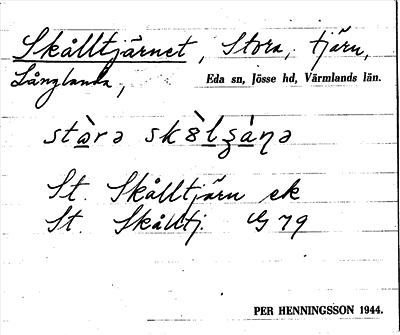 Skålltjärnet, Stora, tjärn,
Långlanda,
Eda sn, Jösse hd, Värmlands län.
stàrə sk8̀lʒáṇə
St. Skålltjärn ek
St. Skålltj. G 79
PER HENNINGSSON 1944.